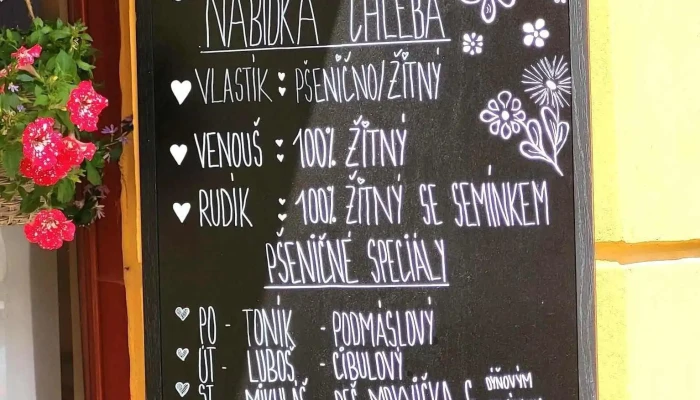 NABÍDKA CHLEBA
VLASTÍK : PŠENIČNO/ŽITNÝ
VENOUŠ : 100% ŽITNÝ
RUDÍK : 100% ŽITNÝ SE SEMÍNKEM
PŠENIČNÉ SPECIÁLY
PO - TONÍK - PODMÁSLOVÝ
ÚT - LUBOŠ - CIBULOVÝ
ST MIKULÁŠ S DÝŇOVÝM